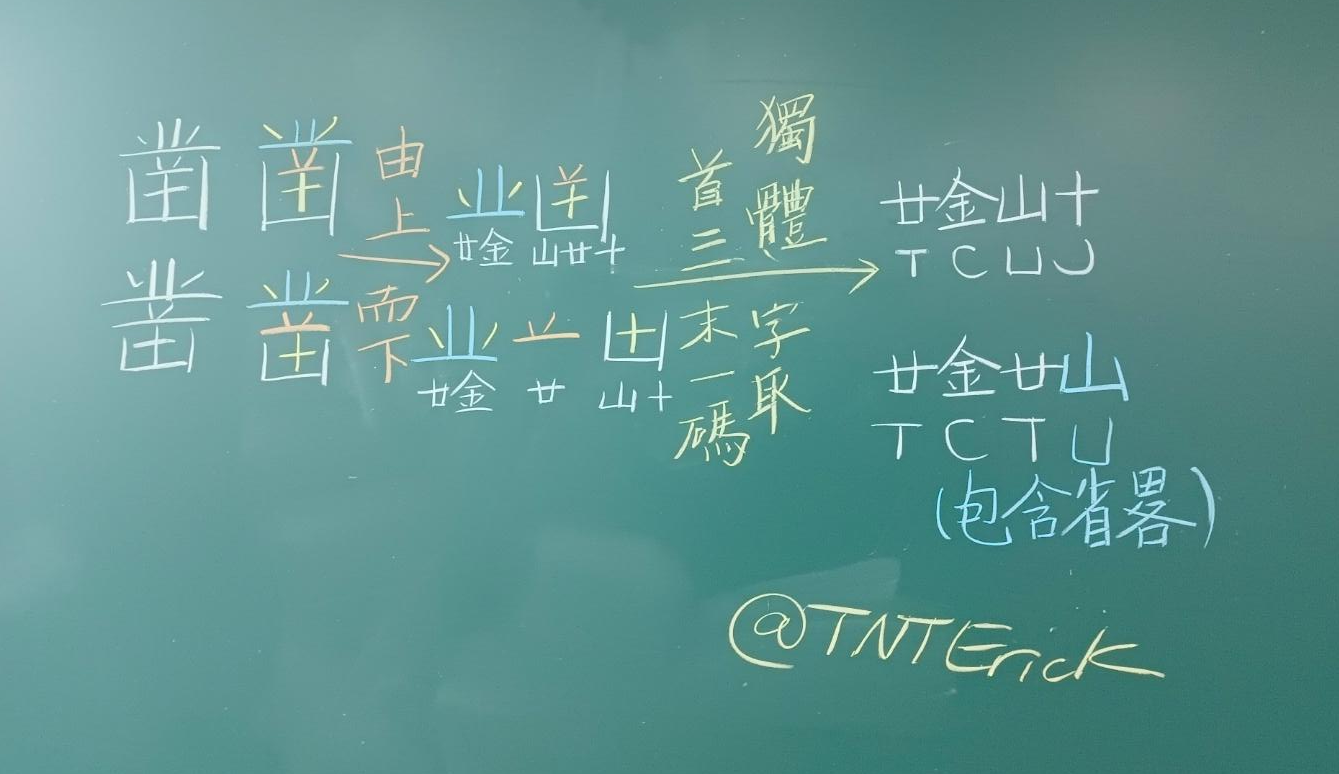 凿 凿 由上而下 业𠙶 獨體字取首三末一碼 廿金山十
廿金 山廿十
TCUJ
凿 凿 业 䒑 凷 廿金廿山
廿金 廿 山十
TCTU
(包含省畧)
@TNTErick